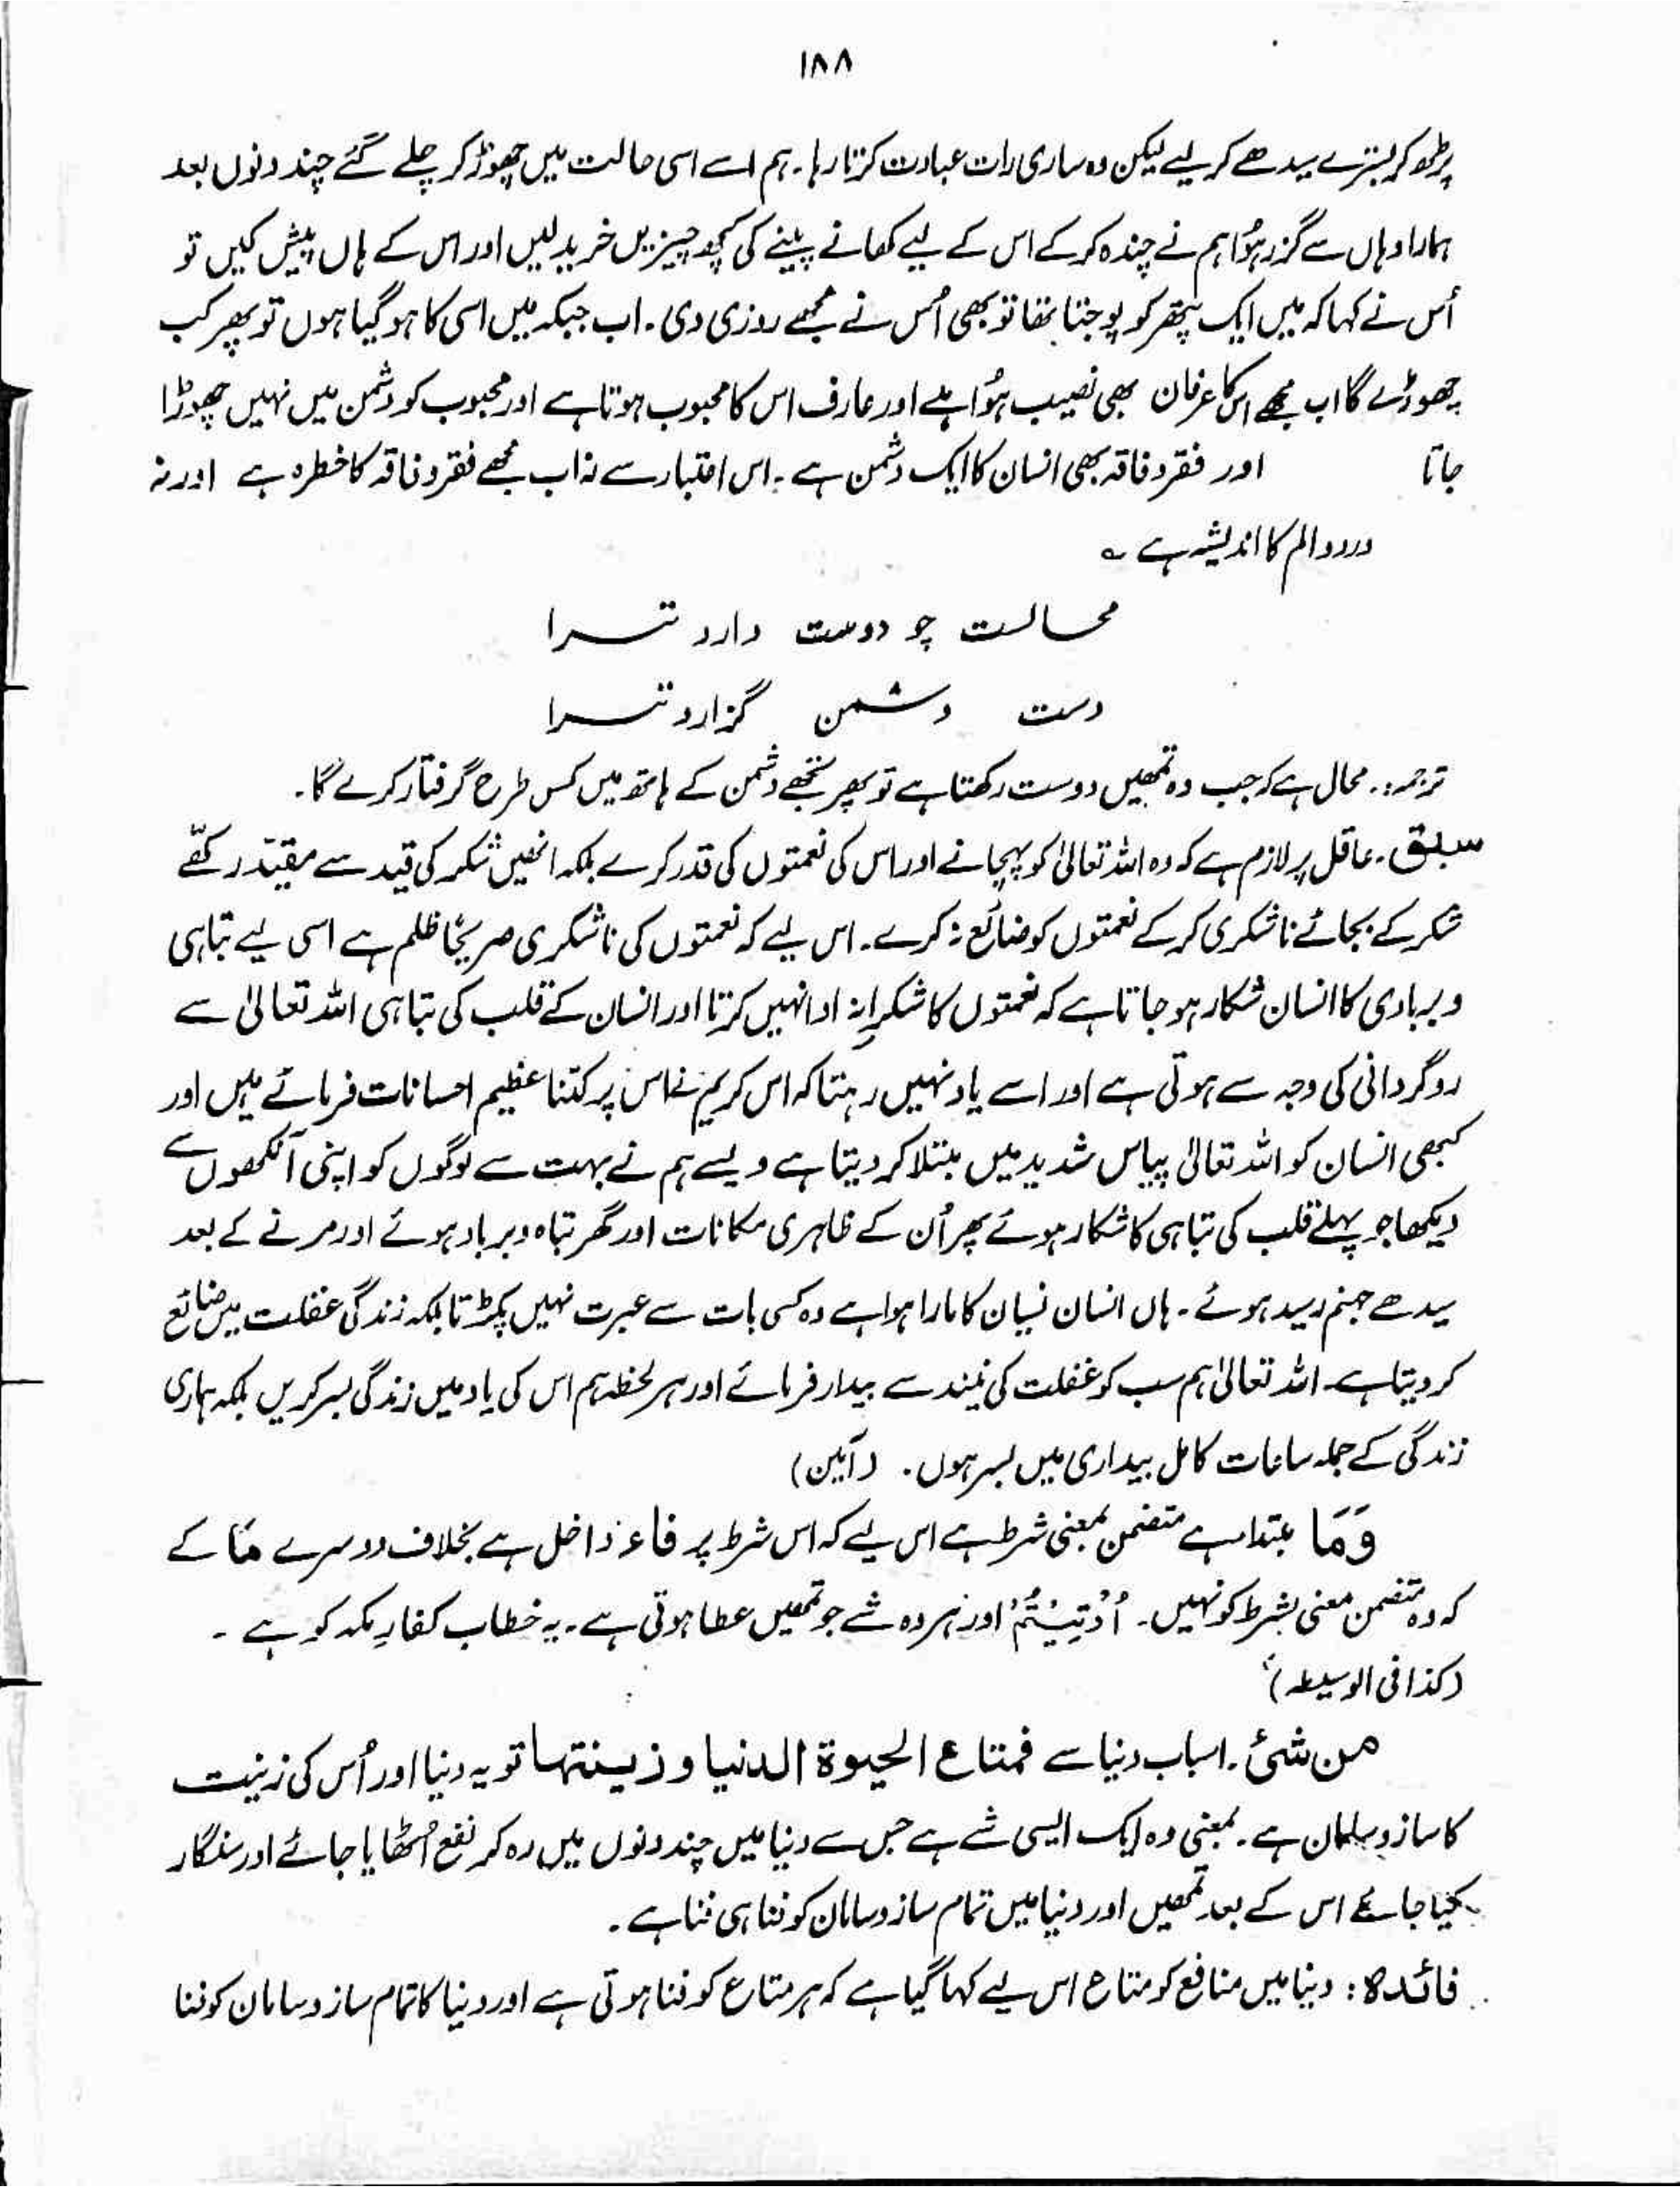 ۱۸۸
پڑھ کر بسترے سیدھے کر لیے لیکن وہ ساری رات عبادت کرتا رہا۔ ہم اسے اسی حالت میں چھوڑ کر چلے گئے چند دنوں بعد
ہمارا وہاں سے گزر ہُوا ہم نے چندہ کر کے اس کے لیے کھانے پینے کی کچھ چیزیں خرید لیں اور اس کے ہاں پیش کیں تو
اُس نے کہا کہ میں ایک پتھر کو پوجتا تھا تو بھی اُس نے مجھے روزی دی۔ اب جبکہ میں اسی کا ہو گیا ہوں تو پھر کب
چھوڑے گا اب مجھے اس کا عرفان بھی نصیب ہُوا ہے اور عارف اس کا محبوب ہوتا ہے اور محبوب کو دشمن میں نہیں چھوڑا
جاتا اور فقر و فاقہ بھی انسان کا ایک دشمن ہے۔ اس اعتبار سے نہ اب مجھے فقر و فاقہ کا خطرہ ہے اور نہ
درد و الم کا اندیشہ ہے ؎
محالست چو دوست دارد ترا
دست دشمن گزارد ترا
ترجمہ:۔ محال ہے کہ جب وہ تمھیں دوست رکھتا ہے تو پھر تجھے دشمن کے ہاتھ میں کس طرح گرفتار کرے گا۔
سبق۔ عاقل پر لازم ہے کہ وہ اللہ تعالیٰ کو پہچانے اور اس کی نعمتوں کی قدر کرے بلکہ انھیں شکر کی قید سے مقیّد رکھے
شکر کے بجائے ناشکری کر کے نعمتوں کو ضائع نہ کرے۔ اس لیے کہ نعمتوں کی ناشکری صریحًا ظلم ہے اسی لیے تباہی
و بربادی کا انسان شکار ہو جاتا ہے کہ نعمتوں کا شکرانہ ادا نہیں کرتا اور انسان کے قلب کی تباہی اللہ تعالیٰ سے
روگردانی کی وجہ سے ہوتی ہے اور اسے یاد نہیں رہتا کہ اس کریم نے اس پر کتنا عظیم احسانات فرمائے ہیں اور
کبھی انسان کو اللہ تعالیٰ پیاس شدید میں مبتلا کر دیتا ہے ویسے ہم نے بہت سے لوگوں کو اپنی آنکھوں سے
دیکھا جو پہلے قلب کی تباہی کا شکار ہوئے پھر اُن کے ظاہری مکانات اور گھر تباہ و برباد ہوئے اور مرنے کے بعد
سیدھے جہنم رسید ہوئے۔ ہاں انسان نسیان کا مارا ہوا ہے وہ کسی بات سے عبرت نہیں پکڑتا بلکہ زندگی غفلت میں ضائع
کر دیتا ہے۔ اللہ تعالیٰ ہم سب کو غفلت کی نیند سے بیدار فرمائے اور ہر لحظہ ہم اس کی یاد میں زندگی بسر کریں بلکہ ہماری
زندگی کے جملہ ساعات کامل بیداری میں بسر ہوں۔ (آمین)
وَمَا مبتدا ہے متضمن بمعنی شرط ہے اس لیے کہ اس شرط پر فاء داخل ہے بخلاف دوسرے مَا کے
کہ وہ متضمن معنی بشرط کو نہیں۔ اُوْتِیْتُمْ اور ہر وہ شے جو تمھیں عطا ہوتی ہے۔ یہ خطاب کفارِ مکہ کو ہے۔
(کذا فی الوسیط)
من شئ۔ اسباب دنیا سے فمتاع الحیوۃ الدنیا و زینتھا تو یہ دنیا اور اُس کی زینت
کا ساز و سامان ہے۔ بمعنی وہ ایک ایسی شے ہے جس سے دنیا میں چند دنوں میں رہ کر نفع اُٹھایا جائے اور سنگار
کیا جائے اس کے بعد تمھیں اور دنیا میں تمام ساز و سامان کو فنا ہی فنا ہے۔
فائدہ: دنیا میں منافع کو متاع اس لیے کہا گیا ہے کہ ہر متاع کو فنا ہوتی ہے اور دنیا کا تمام ساز و سامان کو فنا